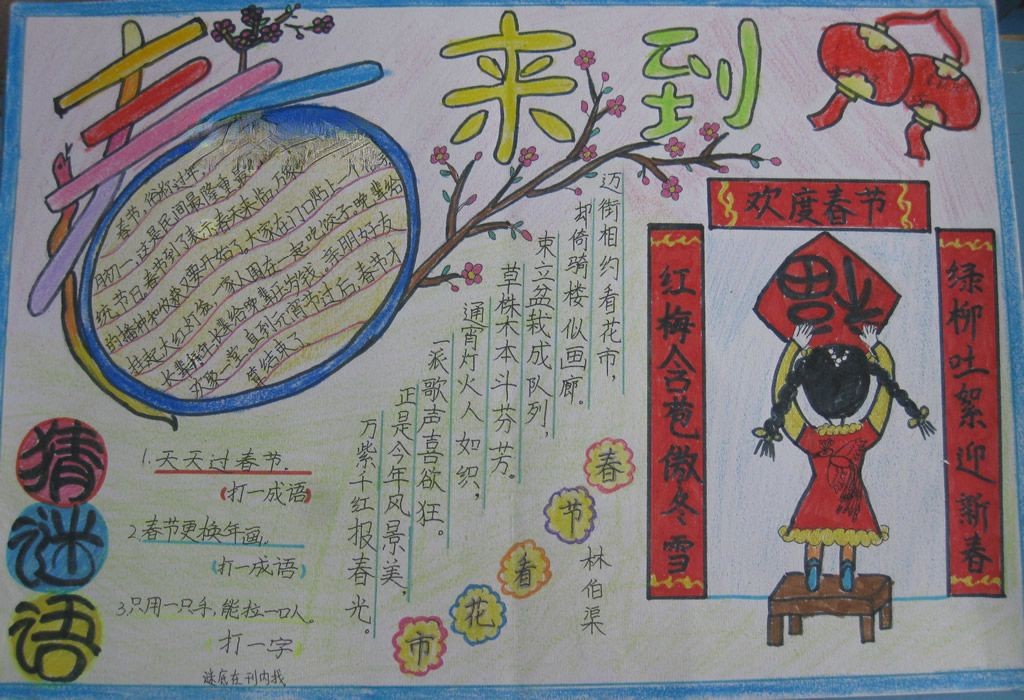 春来到
春节，俗称过年，
初一，这是民间最隆重最
统节日。春节到了，表示春天来临，万象
的播种和收获又要开始了。大家在门口贴上
挂起大红灯笼，一家人围在一起吃饺子。晚辈给
长辈拜年，长辈给晚辈压岁钱。年朋好友
欢聚一堂。直到元宵节过后，春节才
算结束了
春节看花市
林伯渠
迈街相约看花市，
却倚骑楼似画廊。
束立盆栽成队列，
草株木本斗芬芳。
通宵灯火人如织，
一派歌声喜欲狂。
正是今年风景美，
万紫千红报春光。
欢度春节
红梅含苞傲冬雪
绿柳吐絮迎新春
福
猜谜语
1.天天过春节.
(打一成语)
2.春节更换年画.
(打一成语)
3.只用一只手，能拉一口人。
打一字
谜底在刊内找